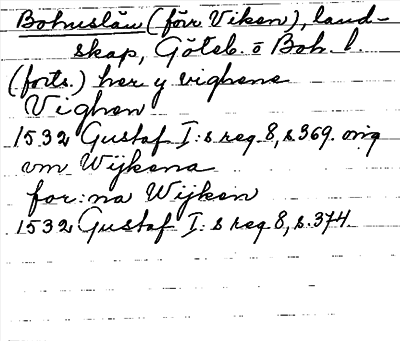 Bohuslän (förr Viken), land-
skap, Göteb. o Boh. l.
(forts.) her y vighene
Vighen
1532 Gustaf I:s reg 8, s 369. orig
vm Wijkena
for:na Wijken
1532 Gustaf I:s reg 8, s. 374.